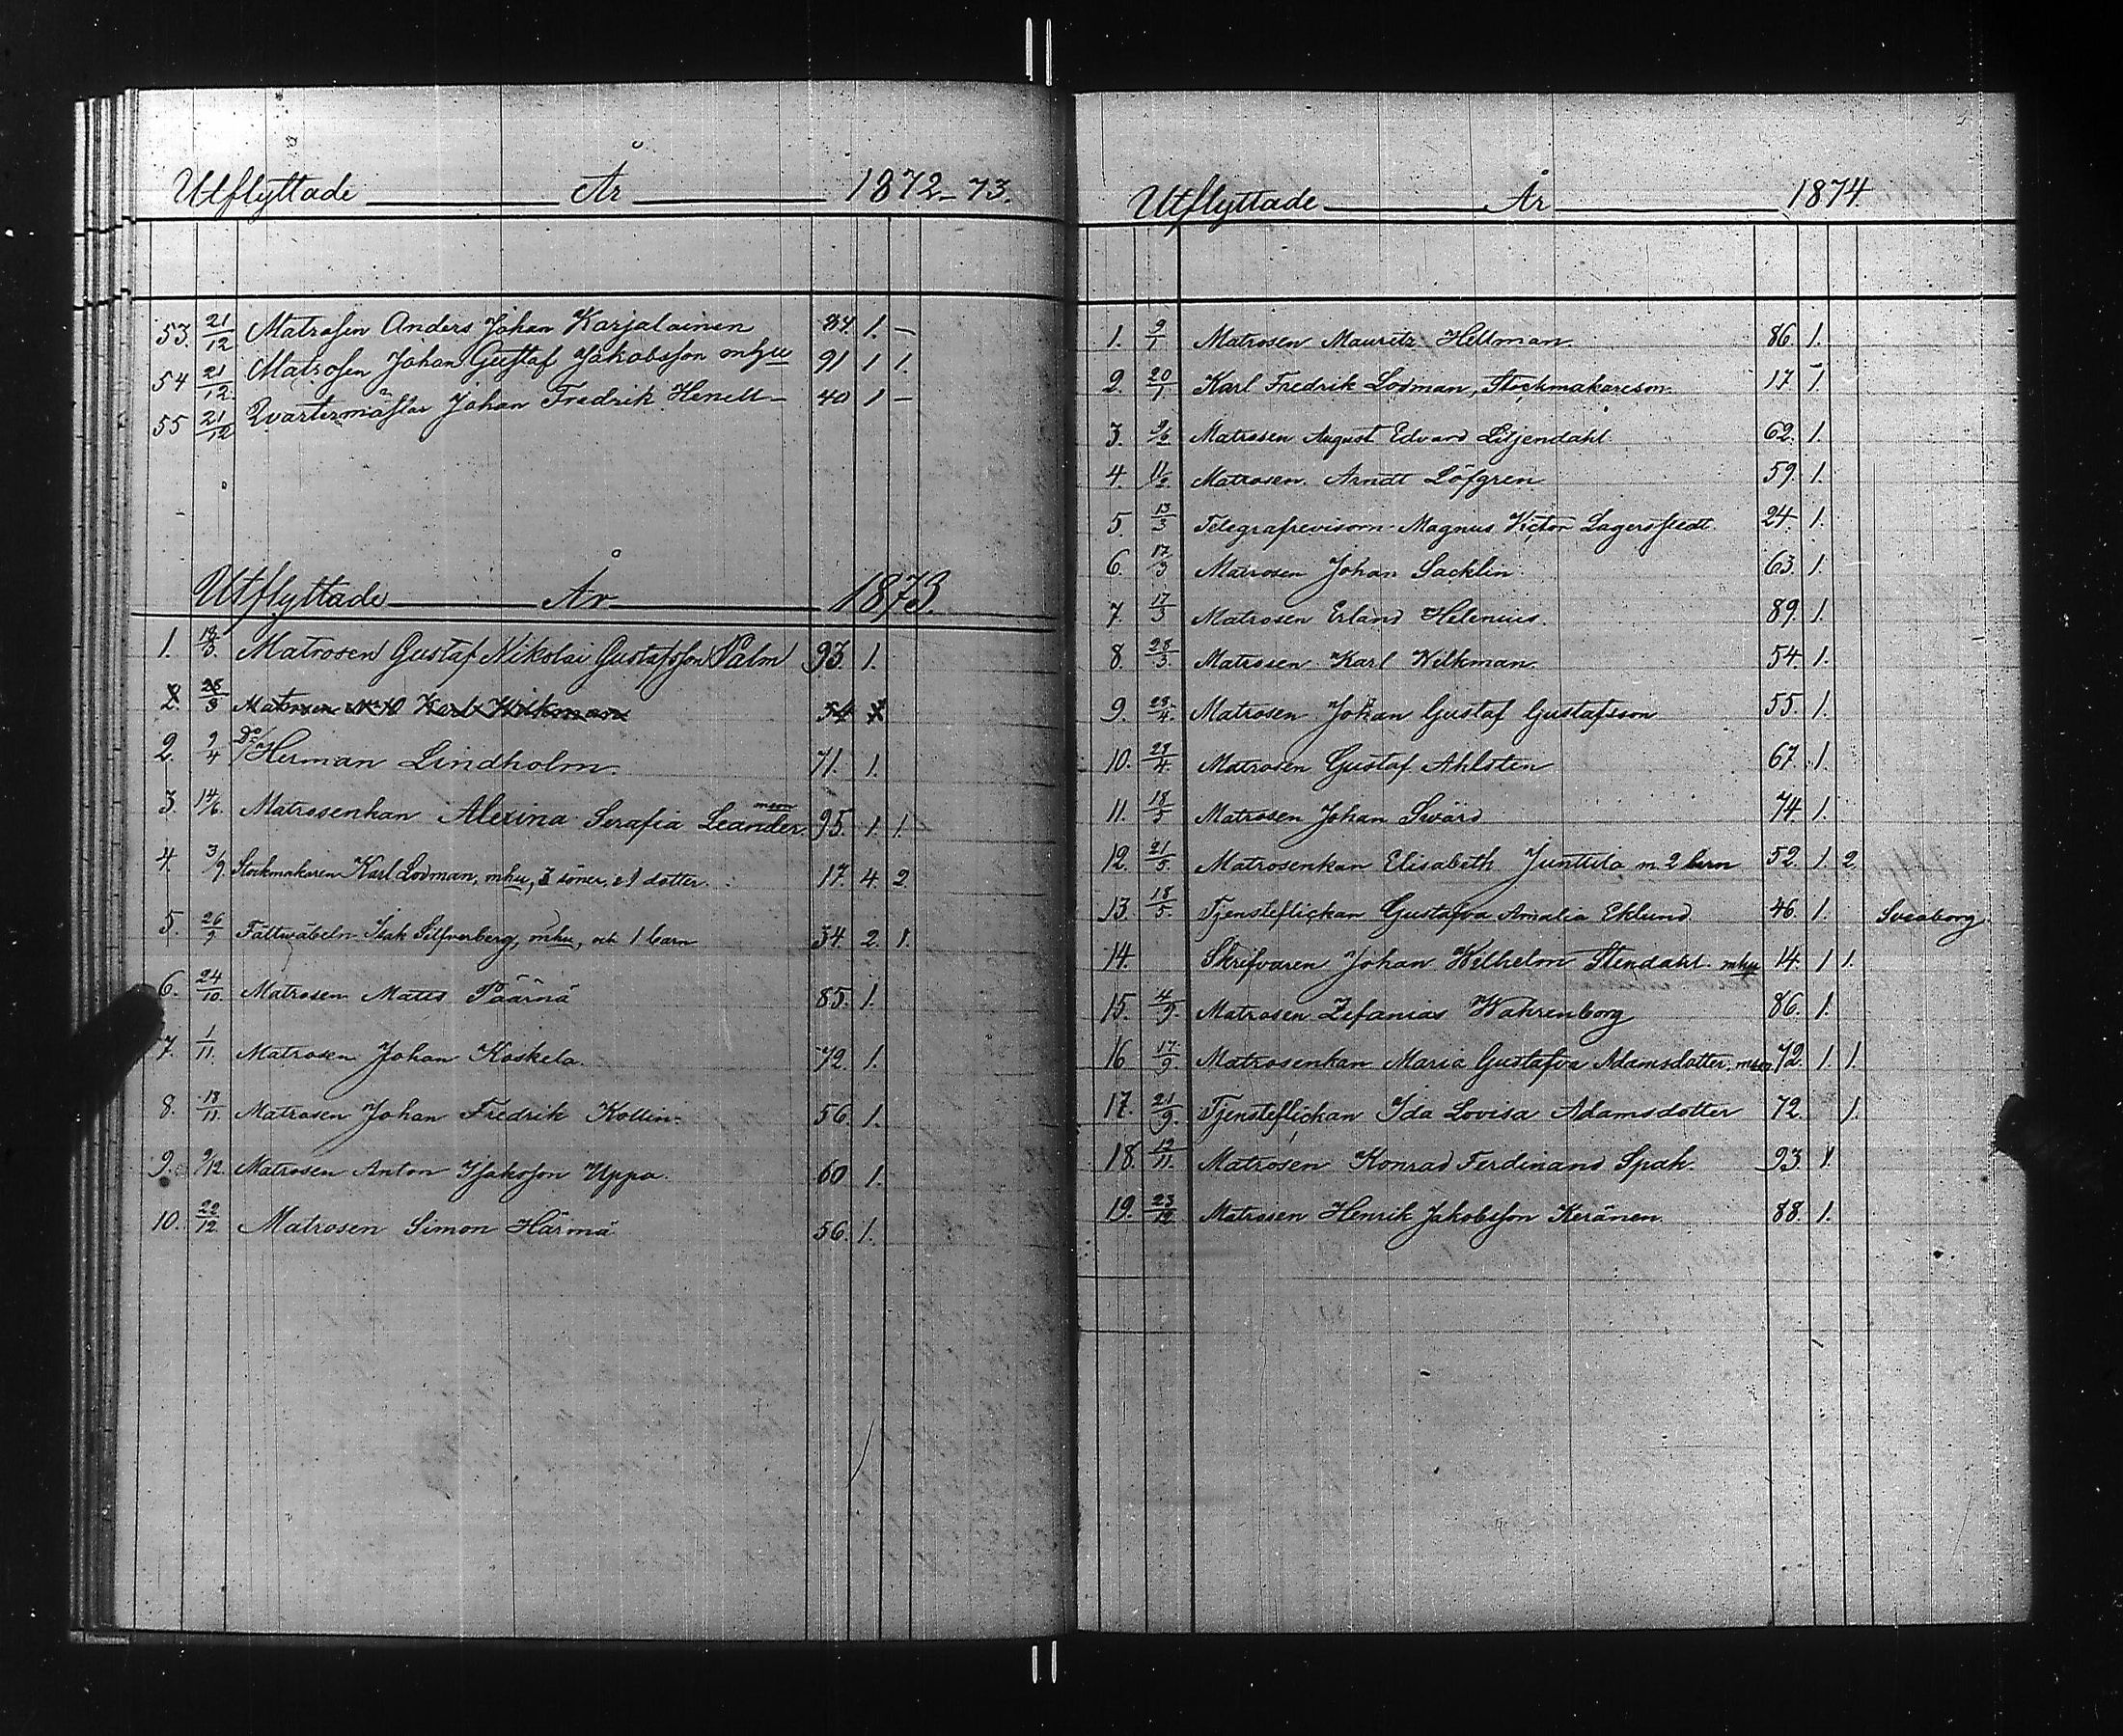 Utflyttade År 1872-73.
53. 21/12 Matrosen Anders Johan Karjalainen 84. 1. –
54 21/12. Matrosen Johan Gustaf Jakobsson mhu 91 1 1.
55 21/12 Qvartermästar Johan Fredrik Henell – 40 1 –
Utflyttade År 1873.
1. 18/3. Matrosen Gustaf Nikolai Gustafsson Palm 93. 1.
2. 28/3 Matrosen Karl Wilkman 54 1
2. 2/4 Do Herman Lindholm. 71. 1.
3. 14/6. Matrosenkan Alexina Serafia Leander mson 95. 1. 1.
4. 3/9. Stockmakaren Karl Lodman, mhu, 3 söner, o 1 dotter. 17. 4. 2.
5. 26/9 Fältwäbeln Isak Silfverberg, mhu, och 1 barn 34. 2. 1.
6. 24/10. Matrosen Matts Päärnä 85. 1.
7. 1/11. Matrosen Johan Koskela. 72. 1.
8. 18/11. Matrosen Johan Fredrik Kollin. 56. 1.
9. 9/12. Matrosen Anton Isaksson Uppa. 60 1.
10. 22/12. Matrosen Simon Härmä 56. 1.
Utflyttade År 1874
1. 9/1 Matrosen Mauritz Hellman. 86. 1.
2. 20/1 Karl Fredrik Lodman, Stockmakareson. 17 1.
3. 9/2. Matrosen August Edvard Liljendahl 62. 1.
4. 11/2. Matrosen Arndt Löfgren 59. 1.
5. 13/3 Telegrafrevisorn Magnus Victor Lagerstedt 24 1.
6. 17/3 Matrosen Johan Sacklin. 63. 1.
7. 17/3 Matrosen Erland Helenius. 89. 1.
8. 28/3 Matrosen Karl Wilkman. 54. 1.
9. 28/4. Matrosen Johan Gustaf Gustafsson 55. 1.
10. 29/4. Matrosen Gustaf Ahlsten 67. 1.
11. 18/5 Matrosen Johan Swärd 74. 1.
12. 21/5. Matrosenkan Elisabeth Junttila m. 2 barn 52. 1. 2
13. 18/5. Tjensteflickan Gustafva Amalia Eklund 46. 1. Sveaborg.
14. Skrifvaren Johan Wilhelm Stendahl mhu 14. 1 1.
15. 4/9. Matrosen Zefanias Wahrenborg 86. 1.
16 17/9. Matrosenkan Maria Gustafva Adamsdotter, mson 72. 1. 1.
17. 21/9. Tjensteflickan Ida Lovisa Adamsdotter 72 1.
18. 12/11. Matrosen Konrad Ferdinand Spak. 93. 1.
19. 23/12 Matrosen Henrik Jakobsson Keränen. 88. 1.